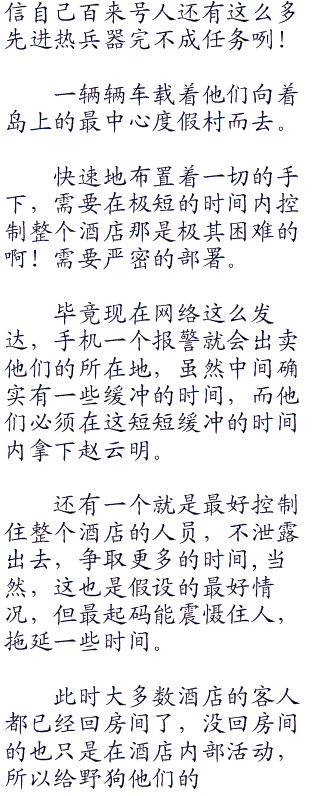 信自己百来号人还有这么多
先进热兵器完不成任务咧！
一辆辆车载着他们向着
岛上的最中心度假村而去。
快速地布置着一切的手
下，需要在极短的时间内控
制整个酒店那是极其困难的
啊！需要严密的部署。
毕竟现在网络这么发
达，手机一个报警就会出卖
他们的所在地，虽然中间确
实有一些缓冲的时间，而他
们必须在这短短缓冲的时间
内拿下赵云明。
还有一个就是最好控制
住整个酒店的人员，不泄露
出去，争取更多的时间,当
然，这也是假设的最好情
况，但最起码能震慑住人，
拖延一些时间。
此时大多数酒店的客人
都已经回房间了，没回房间
的也只是在酒店内部活动，
所以给野狗他们的